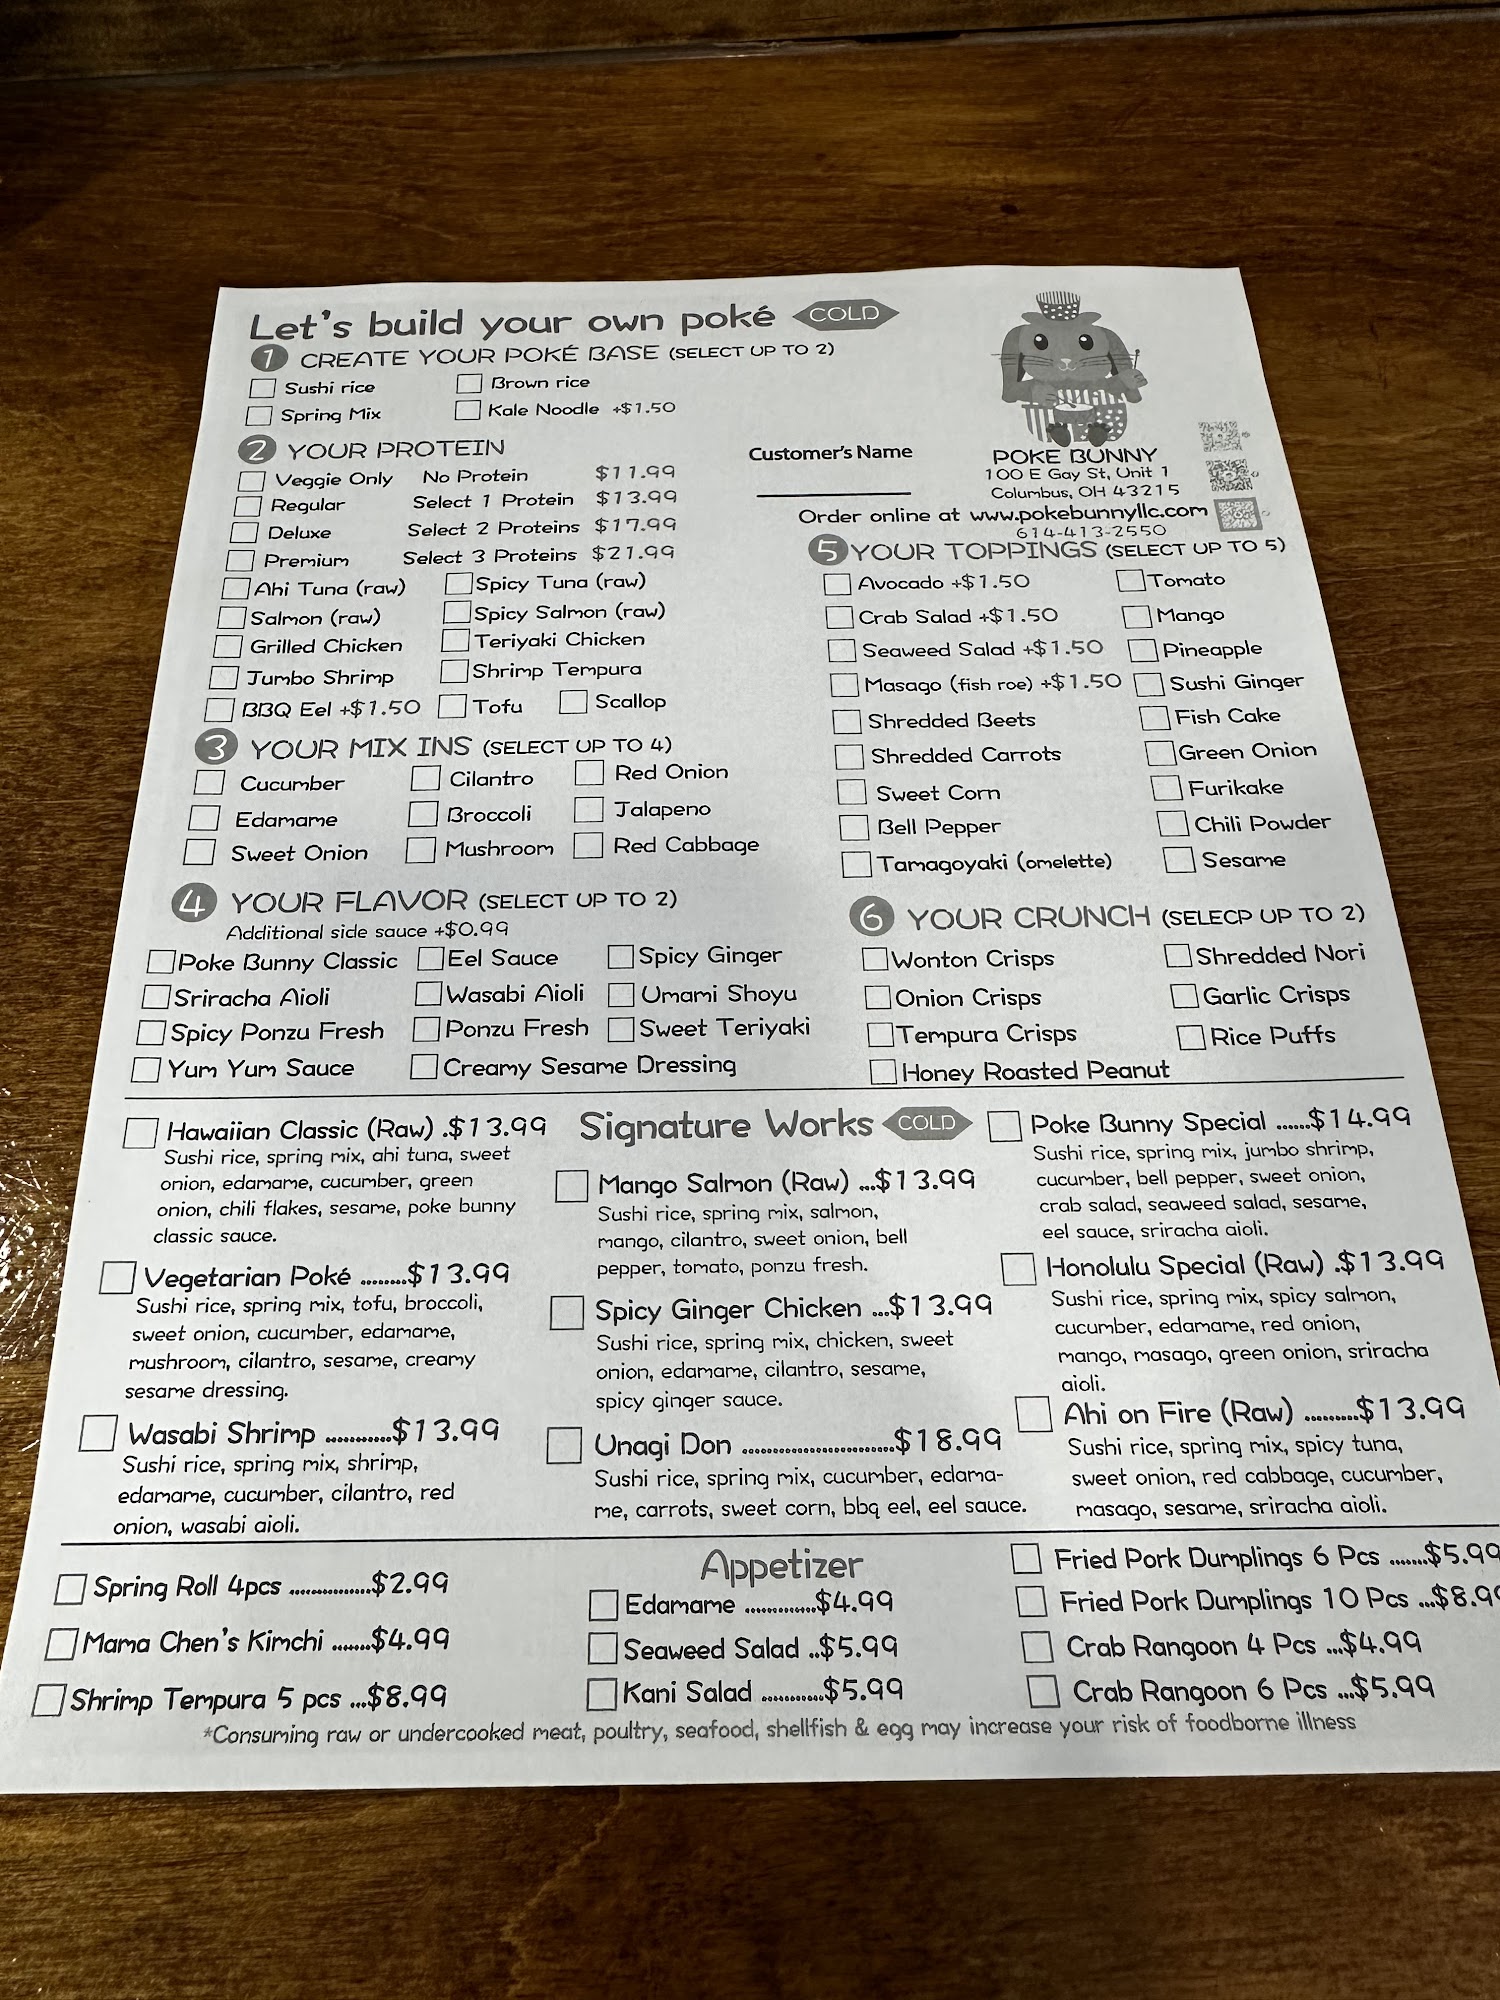 Let's build your own poké COLD
1 CREATE YOUR POKÉ BASE (SELECT UP TO 2)
Sushi rice Brown rice
Spring Mix Kale Noodle +$1.50
2 YOUR PROTEIN
Veggie Only No Protein $11.99
Regular Select 1 Protein $13.99
Deluxe Select 2 Proteins $17.99
Premium Select 3 Proteins $21.99
Ahi Tuna (raw) Spicy Tuna (raw)
Salmon (raw) Spicy Salmon (raw)
Grilled Chicken Teriyaki Chicken
Jumbo Shrimp Shrimp Tempura
BBQ Eel +$1.50 Tofu Scallop
3 YOUR MIX INS (SELECT UP TO 4)
Cucumber Cilantro Red Onion
Edamame Broccoli Jalapeno
Sweet Onion Mushroom Red Cabbage
4 YOUR FLAVOR (SELECT UP TO 2)
Additional side sauce +$0.99
Poke Bunny Classic Eel Sauce Spicy Ginger
Sriracha Aioli Wasabi Aioli Umami Shoyu
Spicy Ponzu Fresh Ponzu Fresh Sweet Teriyaki
Yum Yum Sauce Creamy Sesame Dressing
Customer's Name
POKE BUNNY
100 E Gay St, Unit 1
Columbus, OH 43215
Order online at www.pokebunnyllc.com
614-413-2550
5 YOUR TOPPINGS (SELECT UP TO 5)
Avocado +$1.50 Tomato
Crab Salad +$1.50 Mango
Seaweed Salad +$1.50 Pineapple
Masago (fish roe) +$1.50 Sushi Ginger
Shredded Beets Fish Cake
Shredded Carrots Green Onion
Sweet Corn Furikake
Bell Pepper Chili Powder
Tamagoyaki (omelette) Sesame
6 YOUR CRUNCH (SELECP UP TO 2)
Wonton Crisps Shredded Nori
Onion Crisps Garlic Crisps
Tempura Crisps Rice Puffs
Honey Roasted Peanut
Signature Works COLD
Hawaiian Classic (Raw) .$13.99
Sushi rice, spring mix, ahi tuna, sweet
onion, edamame, cucumber, green
onion, chili flakes, sesame, poke bunny
classic sauce.
Vegetarian Poké .........$13.99
Sushi rice, spring mix, tofu, broccoli,
sweet onion, cucumber, edamame,
mushroom, cilantro, sesame, creamy
sesame dressing.
Wasabi Shrimp ............$13.99
Sushi rice, spring mix, shrimp,
edamame, cucumber, cilantro, red
onion, wasabi aioli.
Mango Salmon (Raw) ...$13.99
Sushi rice, spring mix, salmon,
mango, cilantro, sweet onion, bell
pepper, tomato, ponzu fresh.
Spicy Ginger Chicken ...$13.99
Sushi rice, spring mix, chicken, sweet
onion, edamame, cilantro, sesame,
spicy ginger sauce.
Unagi Don ............................$18.99
Sushi rice, spring mix, cucumber, edama-
me, carrots, sweet corn, bbq eel, eel sauce.
Poke Bunny Special ......$14.99
Sushi rice, spring mix, jumbo shrimp,
cucumber, bell pepper, sweet onion,
crab salad, seaweed salad, sesame,
eel sauce, sriracha aioli.
Honolulu Special (Raw) .$13.99
Sushi rice, spring mix, spicy salmon,
cucumber, edamame, red onion,
mango, masago, green onion, sriracha
aioli.
Ahi on Fire (Raw) .........$13.99
Sushi rice, spring mix, spicy tuna,
sweet onion, red cabbage, cucumber,
masago, sesame, sriracha aioli.
Appetizer
Spring Roll 4pcs ...............$2.99
Mama Chen's Kimchi .......$4.99
Shrimp Tempura 5 pcs ...$8.99
Edamame .............$4.99
Seaweed Salad ..$5.99
Kani Salad ............$5.99
Fried Pork Dumplings 6 Pcs .......$5.99
Fried Pork Dumplings 10 Pcs ...$8.99
Crab Rangoon 4 Pcs ...$4.99
Crab Rangoon 6 Pcs ...$5.99
*Consuming raw or undercooked meat, poultry, seafood, shellfish & egg may increase your risk of foodborne illness